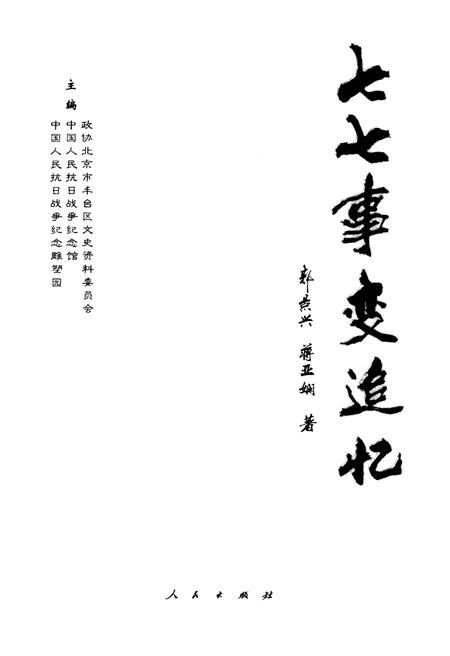 七七事变追忆
郭景兴 蒋亚娴 著
主编
政协北京市丰台区文史资料委员会
中国人民抗日战争纪念馆
中国人民抗日战争纪念雕塑园
人民出版社